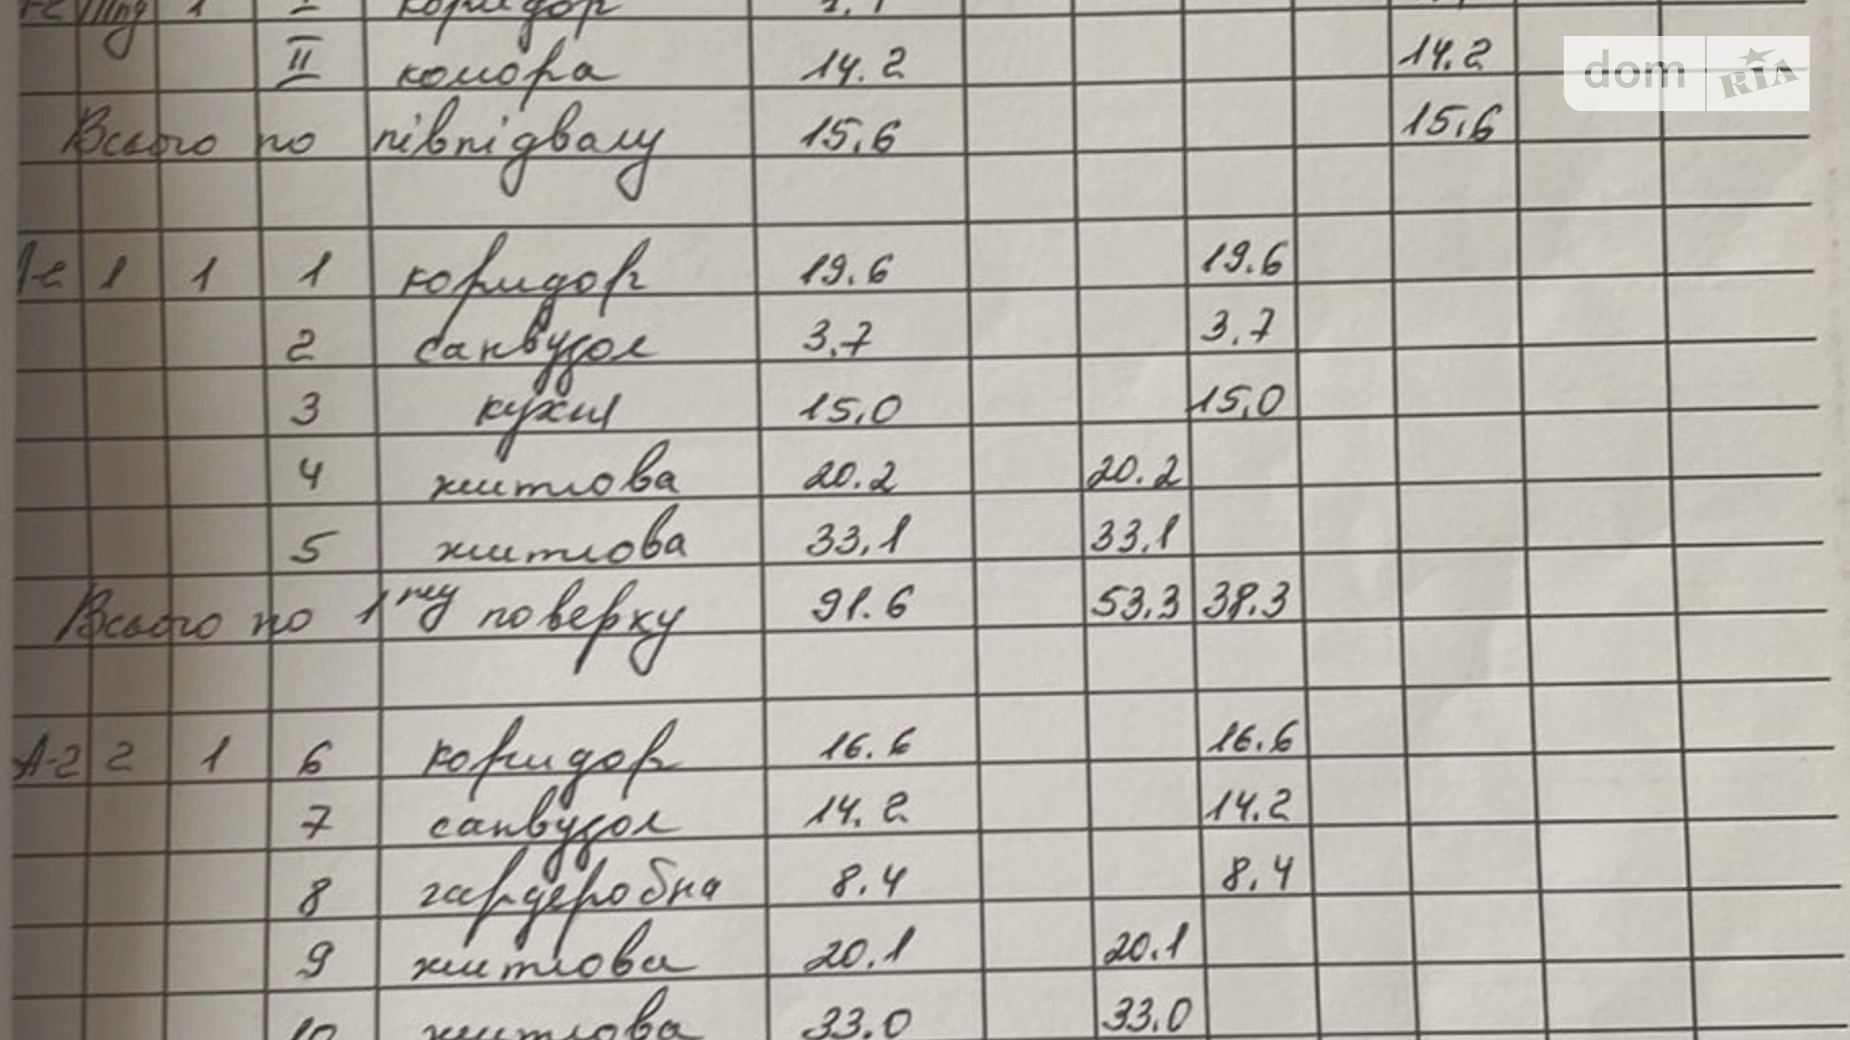 1 I коридор
II комора 14.2 14.2
dom RIA
Всього по півпідвалу 15.6 15.6
1 1 1 коридор 19.6 19.6
2 санвузол 3.7 3.7
3 кухня 15.0 15.0
4 житлова 20.2 20.2
5 житлова 33.1 33.1
Всього по 1му поверху 91.6 53.3 38.3
А-2 2 1 6 коридор 16.6 16.6
7 санвузол 14.2 14.2
8 гардеробна 8.4 8.4
9 житлова 20.1 20.1
10 житлова 33.0 33.0